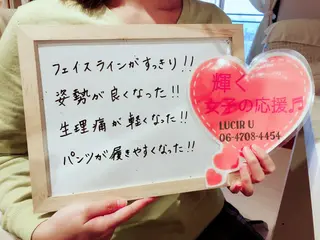 フェイスラインがすっきり!!
姿勢が良くなった!!
生理痛が軽くなった!!
パンツが履きやすくなった!!
輝く
女子の応援♬
LUCIR U
06-4708-4454